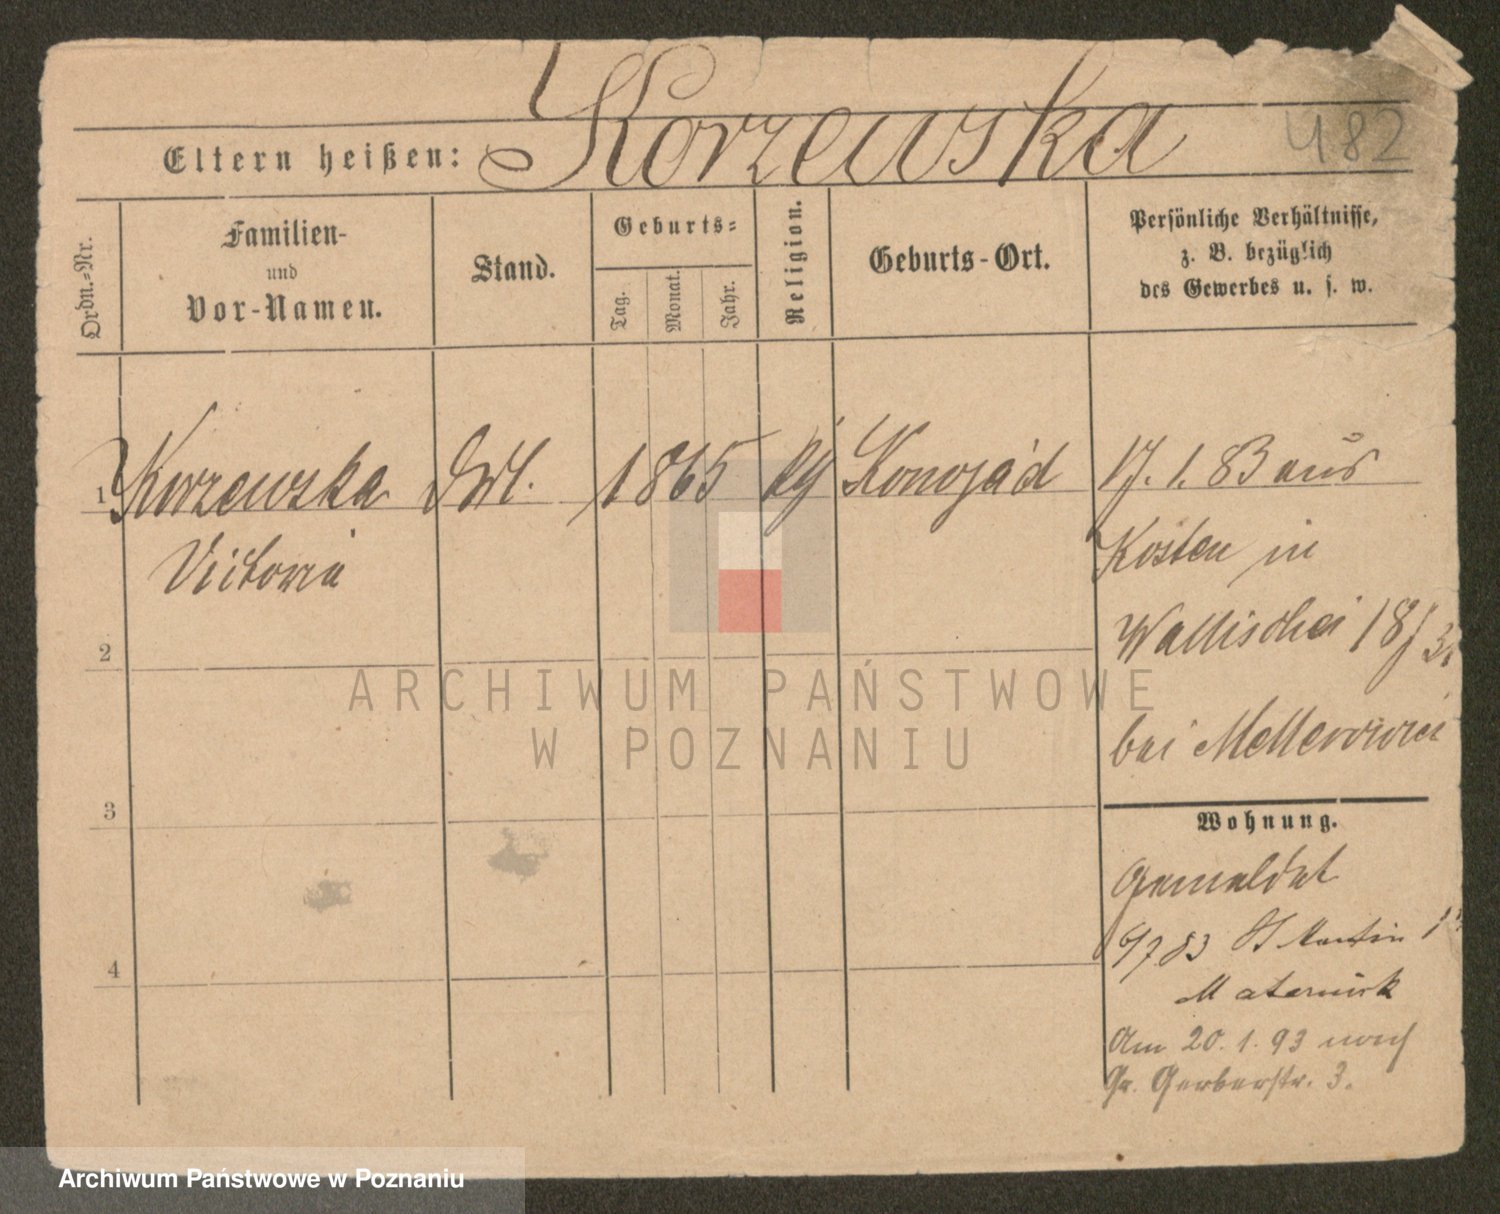 Korzewska
482
Eltern heißen:
Ordn.-Nr.
Familien-
und
Vor-Namen.
Stand.
Geburts-
Tag.
Monat.
Jahr.
Religion.
Geburts-Ort.
Persönliche Verhältnisse,
z. B. bezüglich
des Gewerbes u. s. w.
1 Korzewska 1865 Konojad 17. 1. 83 aus
Victoria
Kosten in
2
Wallischei
bei
ARCHIWUM PAŃSTWOWE
W POZNANIU
3
Wohnung.
Gemeldet
6/7 83 St Martin
4
Am 20. 1. 93 nach
Gr. Gerberstr. 3.
Archiwum Państwowe w Poznaniu